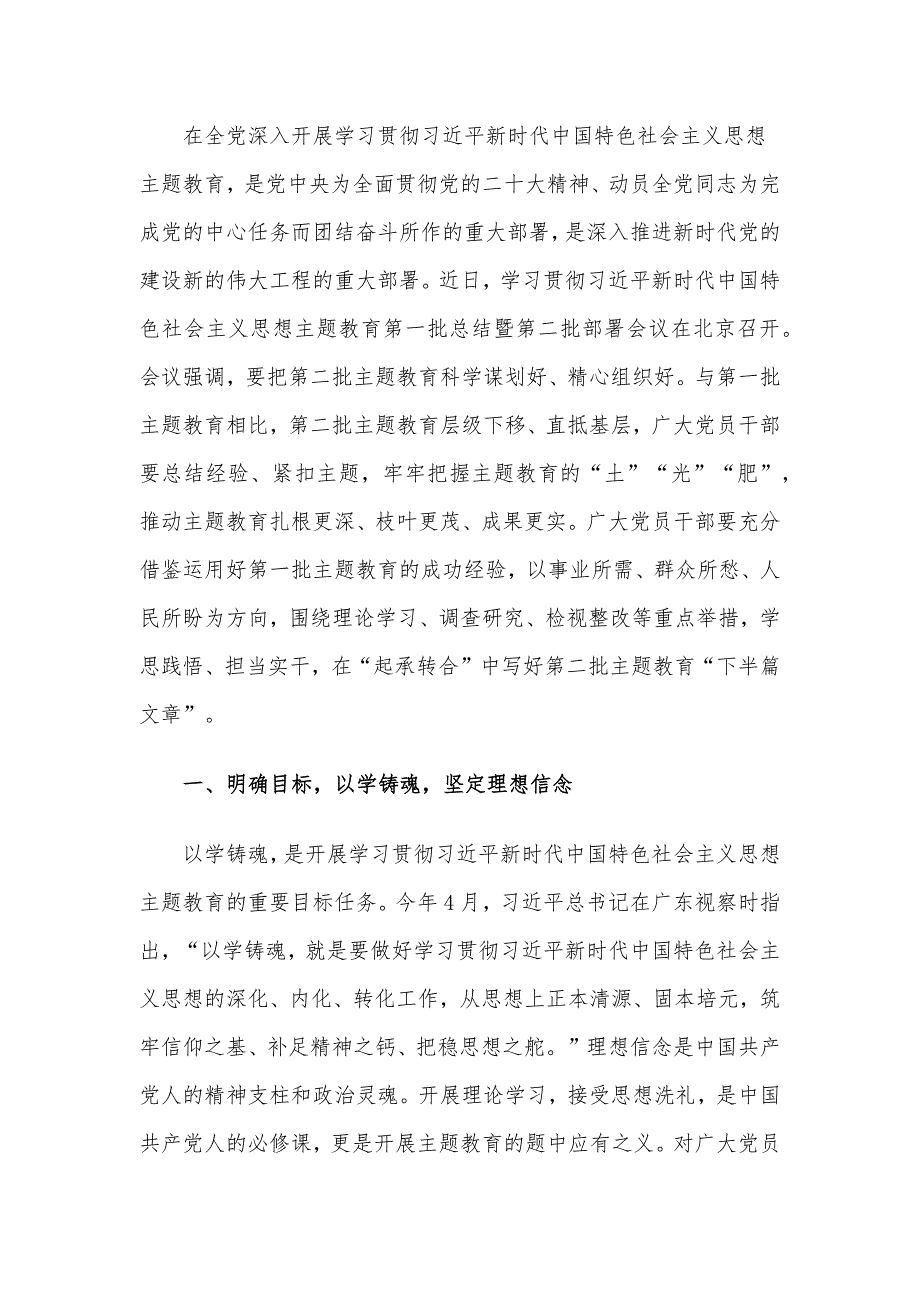 在全党深入开展学习贯彻习近平新时代中国特色社会主义思想
主题教育，是党中央为全面贯彻党的二十大精神、动员全党同志为完
成党的中心任务而团结奋斗所作的重大部署，是深入推进新时代党的
建设新的伟大工程的重大部署。近日，学习贯彻习近平新时代中国特
色社会主义思想主题教育第一批总结暨第二批部署会议在北京召开。
会议强调，要把第二批主题教育科学谋划好、精心组织好。与第一批
主题教育相比，第二批主题教育层级下移、直抵基层，广大党员干部
要总结经验、紧扣主题，牢牢把握主题教育的“土”“光”“肥”，
推动主题教育扎根更深、枝叶更茂、成果更实。广大党员干部要充分
借鉴运用好第一批主题教育的成功经验，以事业所需、群众所愁、人
民所盼为方向，围绕理论学习、调查研究、检视整改等重点举措，学
思践悟、担当实干，在“起承转合”中写好第二批主题教育“下半篇
文章”。
一、明确目标，以学铸魂，坚定理想信念
以学铸魂，是开展学习贯彻习近平新时代中国特色社会主义思想
主题教育的重要目标任务。今年4月，习近平总书记在广东视察时指
出，“以学铸魂，就是要做好学习贯彻习近平新时代中国特色社会主
义思想的深化、内化、转化工作，从思想上正本清源、固本培元，筑
牢信仰之基、补足精神之钙、把稳思想之舵。”理想信念是中国共产
党人的精神支柱和政治灵魂。开展理论学习，接受思想洗礼，是中国
共产党人的必修课，更是开展主题教育的题中应有之义。对广大党员